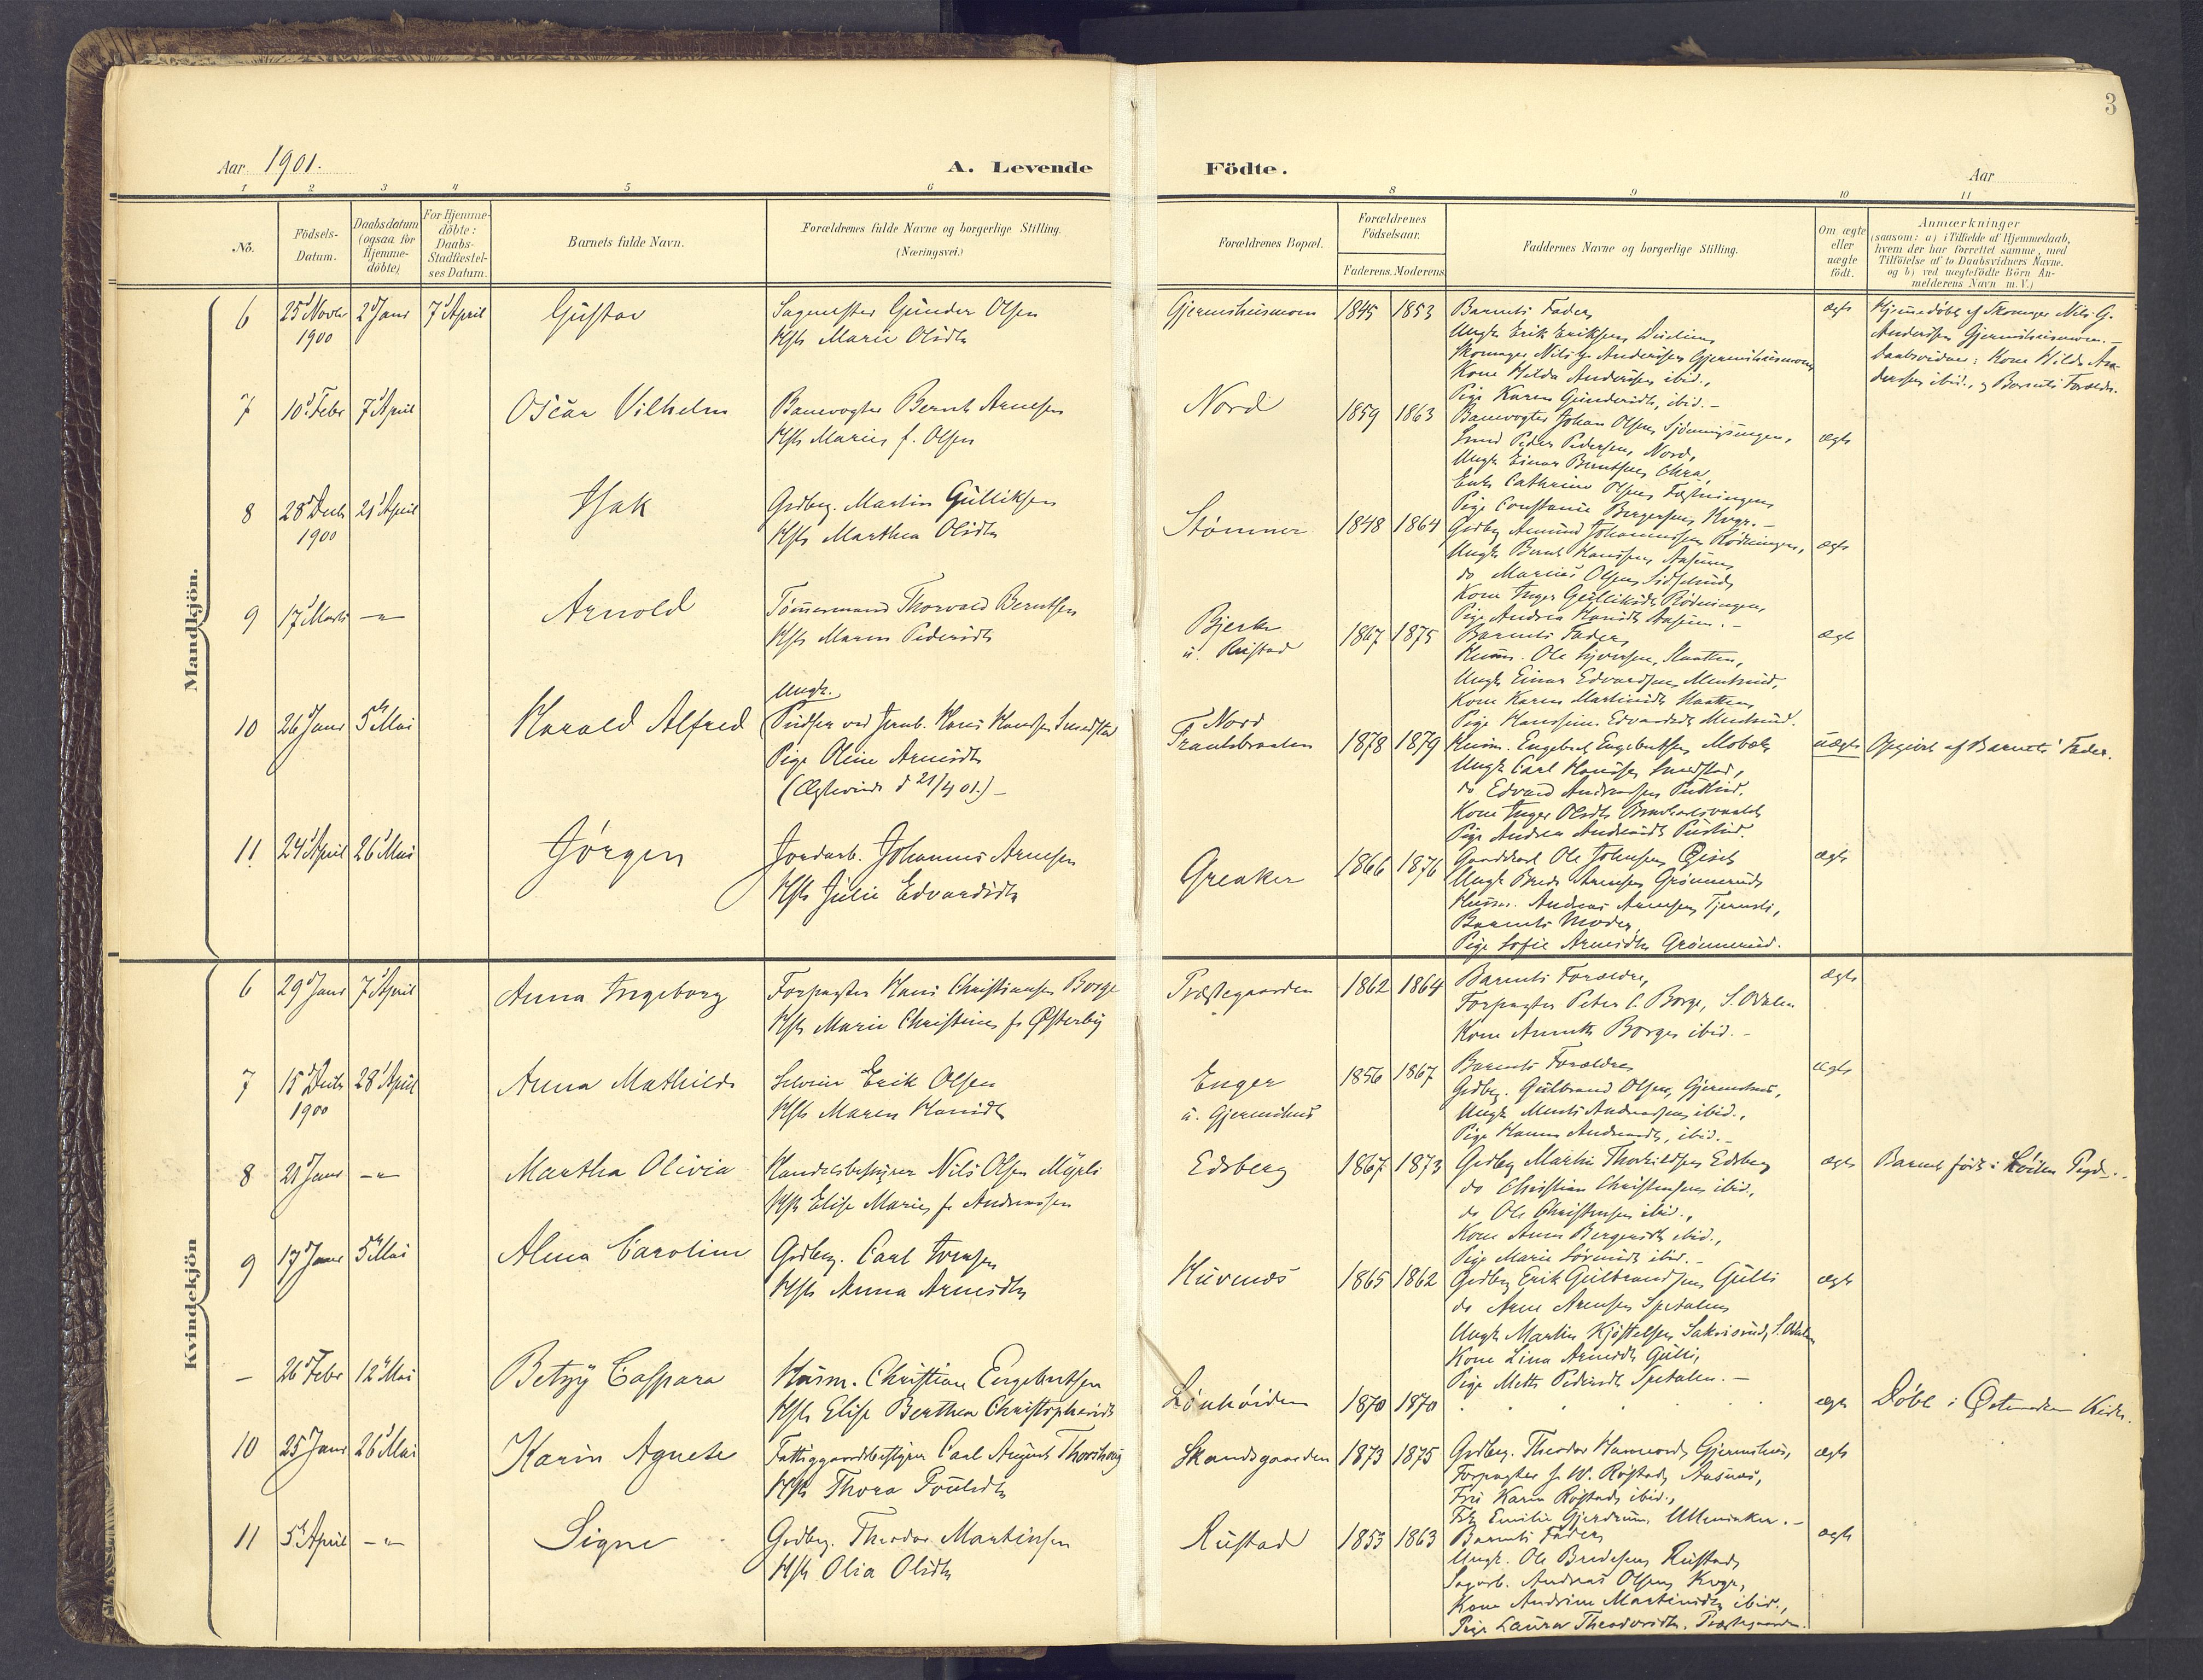 3
Aar 1901.
A. Levende
Födte.
Aar
1 2 3 4 5 6 8 9 10 11
No.
Födsels-
Datum.
Daabsdatum
(ogsaa for
Hjemme-
döbte)
For Hjemme-
döbte:
Daabs-
Stadfæstel-
ses Datum.
Barnets fulde Navn.
Forældrenes fulde Navne og borgerlige Stilling.
(Næringsvei.)
Forældrenes Bopæl.
Forældrenes
Födselsaar.
Faderens. Moderens
Faddernes Navne og borgerlige Stilling.
Om ægte
eller
uægte
födt.
Anmærkninger
(saasom: a) i Tilfælde af Hjemmedaab,
hvem der har forrettet samme, med
Tilföielse af to Daabsvidners Navne.
og b) ved uægtefödte Börn An-
melderens Navn m. V.)
Mandkjön.
6 25d Novbr 2d Janr 7d April Gustav
1900
Gunder Olsen
Hst Marie Olsdtr
Gjermshusmoen 1845 1853
Barnets Fader,
Ungk Erik Eriksen
Nils G. Andersen Gjermshusmoen
Kone Hilda Andersen ibid.,
Pige Karen Gundersdtr, ibid. -
ægte
Hjemmedöbt af Nils G.
Andersen Gjermshusmoen. -
Daabsvidner: Kone Hilda An-
dersen ibid., og Barnets Forældre.
7 10d Febr 7d April Oscar Vilhelm
Banevogter Bernt Arnesen
Hst Marie f. Olsen
Nord 1859 1863
Banevogter Johan Olsen
Peder Pedersen, Nord,
Ungk Einar Berntsen
Enke Cathrine Olsen Fæstningen
Pige Constance Bergersen Kvgr. -
ægte
8 28d Decbr 21d April Isak
1900
Grdbrg. Martin Gulliksen
Hst Marthea Olsdtr
Stömner 1848 1864
Grdbrg Amund Johannessen Rödningen,
Ungk Bernt Hanssen Aasum
do Marius Olsen
Kone Inger Gulliksdtr Rödningen,
Pige Andrea Hansdtr Aasum. -
ægte
9 17d Marts -"- Arnold
Tömmermand Thorvald Berntsen
Hst Maren Pedersdtr
Bjerke
u. Rustad
1867 1875
Barnets Fader,
Husm. Ole Haatten,
Ungk Einar Edvardsen
Kone Karen Martinsdtr Haatten
Pige Edvardsdtr
ægte
10 26d Janr 5d Mai Harald Alfred
Ungk.
Pudser ved Jernb. Hans Hansen Smedstad
Pige Oline Arnesdtr
(Ægteviede d 21/4 01.) -
Nord
1878 1879
Husm. Engebret Engebretsen
Ungk Carl Hansen Smedstad,
do Edvard Andreassen
Kone Inger Olsdtr
Pige Andrea Andreasdtr
uægte Opgivet af Barnets Fader.
11 24d April 26d Mai Jörgen
Jordarb. Johannes Arnesen
Hst Julie Edvardsdtr
Greaker 1866 1876
Gaardskarl Ole Johnsen
Ungk Arnesen Grönnerud
Husm. Andreas Arnesen Tjernsli,
Barnets Moder,
Pige Sofie Arnesdtr Grönnerud.
ægte
Kvindekjön
6 29d Janr 7d April Anna Ingeborg
Forpagter Hans Christiansen Borge
Hst Marie Christine f. Österby
Præstegaarden 1862 1864
Barnets Forældre,
Forpagter Peter C. Borge, S. Odalen
Kone Annette Borge ibid. -
ægte
7 15d Decbr 28d April Anna Mathilde
1900
Selveier Erik Olsen
Hst Maren Hansdtr
Enger
u. Gjermshus
1856 1867
Barnets Forældre
Grdbrg. Gulbrand Olsen, Gjermshus,
Ungk Andreassen ibid.,
Pige Hanna Andreasdtr, ibid. -
ægte
8 21d Janr -"- Martha Olivia
Handelsbestyrer Nils Olsen Myrli
Hst Elise Marie f. Andreassen
Edsberg 1867 1873
Grdbrg Martin Thorkildsen Edsberg
do Christian Christensen ibid.,
do Ole Christensen ibid.,
Kone Anne Bergersdtr ibid.,
Pige Marie ibid. -
ægte Barnet födt i Löiten Pgd. -
9 17d Janr 5d Mai Alma Caroline
Grdbrg. Carl Iversen
Hst Anna Arnesdtr
Huvenæs 1865 1862
Grdbrg Erik Gulbrandsen Gulli
do Arne Arnesen Spetalen
Ungk Martin Kjöstelsen Sakrisrud, S. Odalen
Kone Lina Arnesdtr Gulli,
Pige Mette Pedersdtr Spetalen. -
ægte
- 26d Febr 12d Mai Betzy Caspara
Husm. Christian Engebretsen
Hst Elise Berthea Christophersdtr
Lönhöiden 1870 1870
ægte Döbt i Kirke.
10 25d Janr 26d Mai Karin Agnete
Fattiggaardsbestyrer Carl August Thorshaug
Hst Thora Poulsdtr
Skandsgaarden 1873 1875
Grdbrg. Theodor Gjermshus,
Forpagter J. W. Röstad, Aasnæs,
Fru Karen Röstad, ibid.,
Frk Emilie Gjerdrum, Ullensaker. -
ægte
11 5d April -"- Signe
Grdbrg. Theodor Martinsen
Hst Olia Olsdtr
Rustad 1853 1863
Barnets Fader
Ungk. Ole Bredesen Rustad
Sagarb. Andreas Olsen Kvgr,
Kone Andrine Martinsdtr ibid.,
Pige Laura Theodorsdtr. Præstegaarden.
ægte